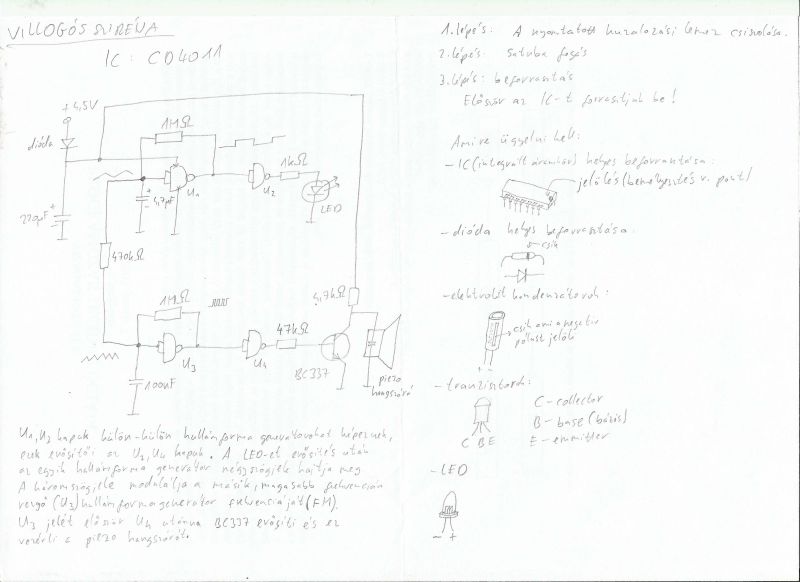 VILLOGÓ SZIRÉNA
IC: CD4011
+4,5V
dióda
1MΩ
1kΩ
U1
U2
LED
4,7µF
220µF
470kΩ
1MΩ
4,7kΩ
47kΩ
U3
U4
BC337
piezo
hangszóró
100nF
U1, U3 kapuk külön-külön hullámforma generátorokat képeznek,
ezek erősítői az U2, U4 kapuk. A LED-et erősítés után
az egyik hullámforma generátor négyszögjele hajtja meg
A háromszögjele modulálja a másik, magasabb frekvencián
rezgő (U3) hullámformagenerátor frekvenciáját (FM).
U3 jelét először U4 utánna BC337 erősíti és ez
vezérli a piezo hangszórót.
1. lépés: A nyomtatott huzalozási lemez csiszolása.
2. lépés: Satuba fogás
3. lépés: beforrasztás
Először az IC-t forrasztjuk be!
Amire ügyelni kell:
- IC (integrált áramkör) helyes beforrasztása:
jelölés (bemélyesztés v. pont)
- dióda helyes beforrasztása.
csík
- elektrolit kondenzátorok:
csík ami a negatív
pólust jelöli
+ -
- tranzisztorok:
C - collector
B - base (bázis)
E - emmitter
C B E
- LED
- +